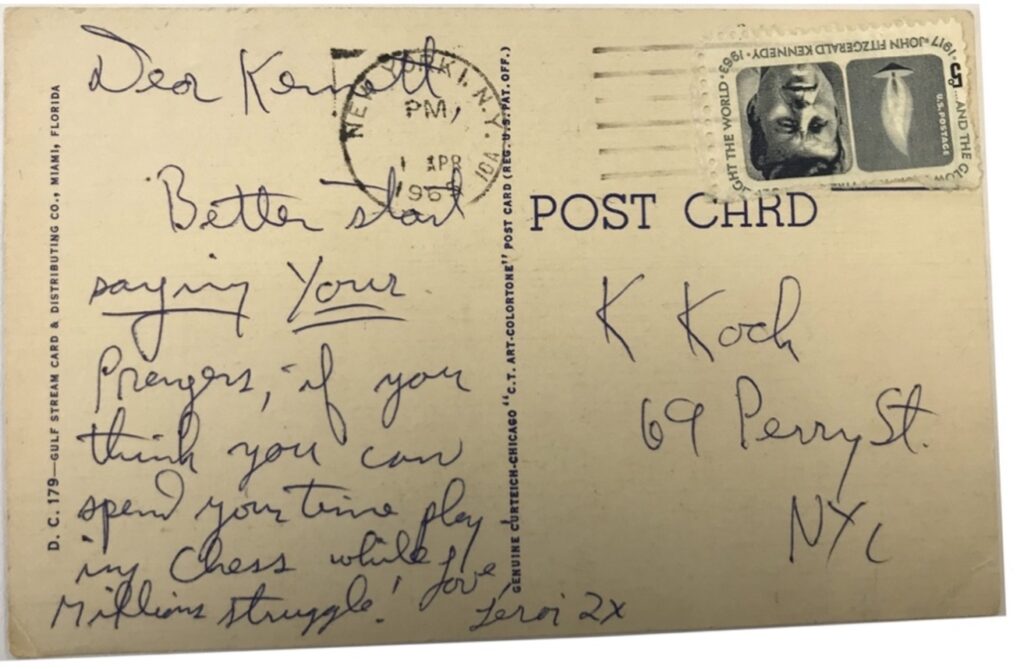 D. C. 179—GULF STREAM CARD & DISTRIBUTING CO., MIAMI, FLORIDA
Dear Kenneth
Better start
saying Your
Prayers, if you
think you can
spend your time play
ing Chess while
Millions struggle! Love,
Leroi 2X
GENUINE CURTEICH-CHICAGO "C.T. ART-COLORTONE" POST CARD (REG. U.S. PAT. OFF.)
NEW YORK 1, N.Y.
PM
1 APR
POST CARD
K Koch
69 Perry St.
NYC
1917·JOHN FITZGERALD KENNEDY·1963
5¢
U.S. POSTAGE
...AND THE GLOW
LIGHT THE WORLD